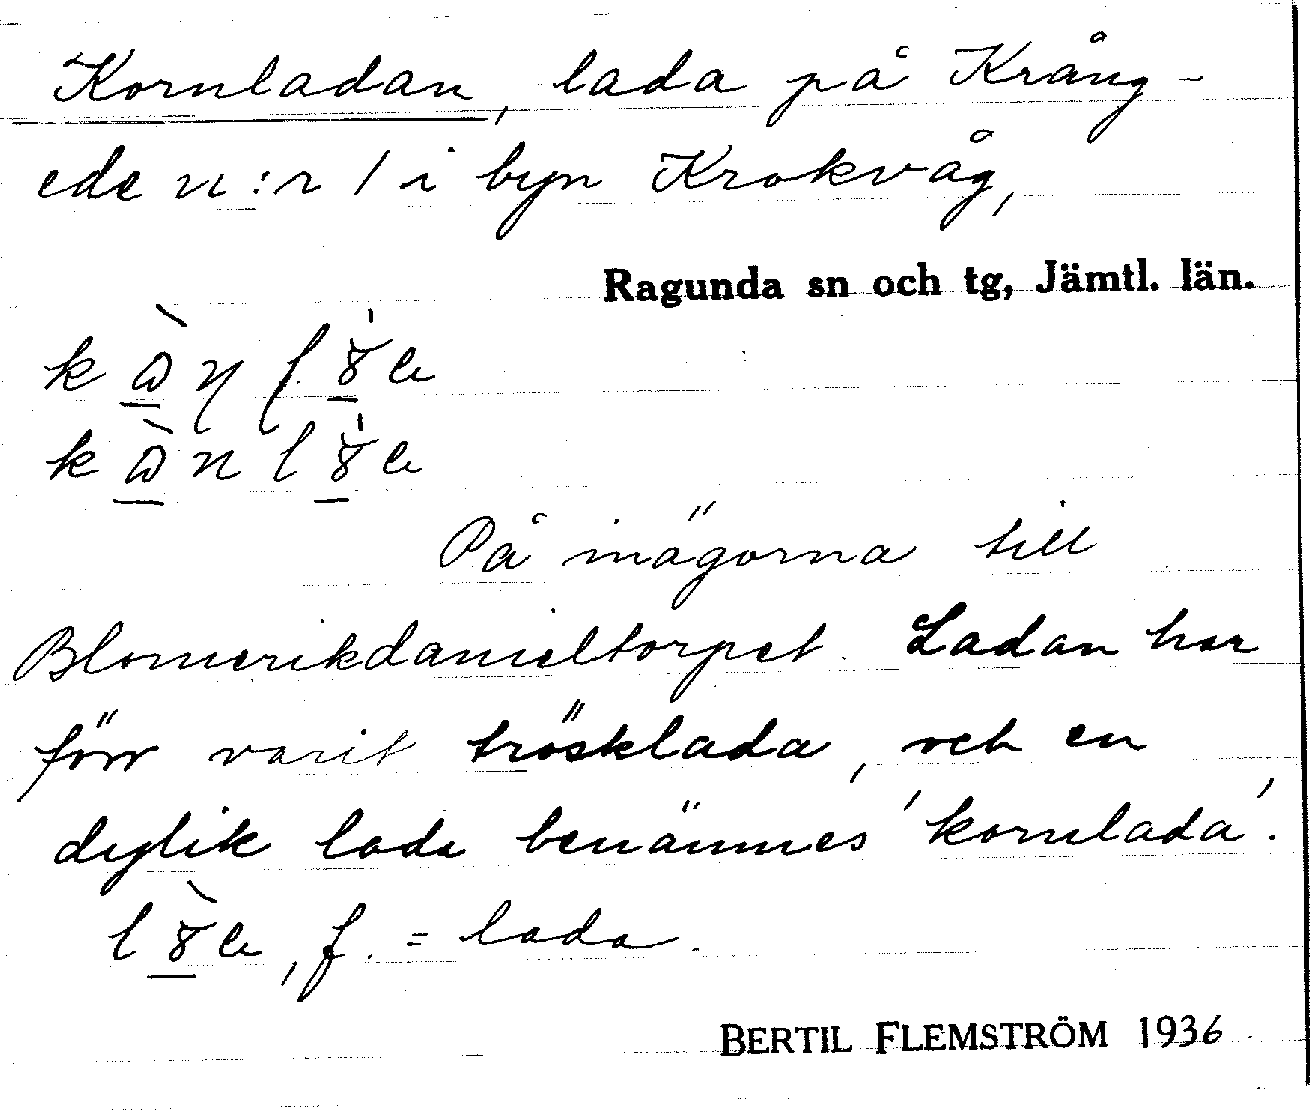 Kornladan, lada på Kràng-
ede n:r 1 i byn Krokvåg,
Ragunda sn och tg, Jämtl. län.
På inägorna till
Blomerikdanieltorpet. Ladan har
förr varit trösklada, och en
dylik lada benämnes 'kornlada'.
f. = lada.
BERTIL FLEMSTRÖM 1936